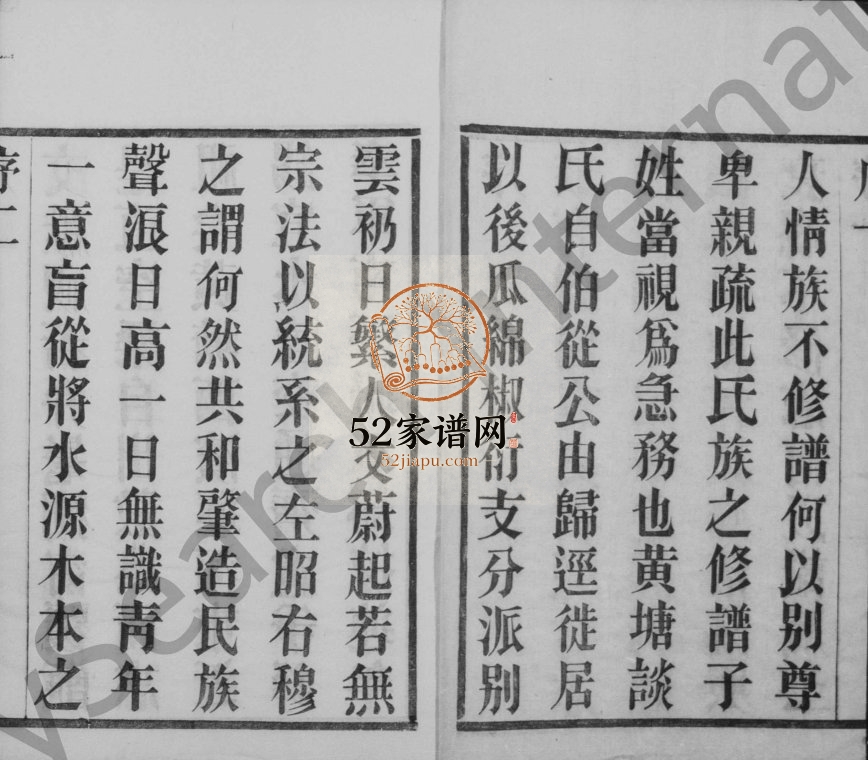 人情族不修譜何以别尊
卑親疏此氏族之修譜子
姓當視爲急務也黄塘談
氏自伯從公由歸逕徙居
以後瓜綿椒衍支分派别
雲礽日繁人文蔚起若無
宗法以統系之左昭右穆
之謂何然共和肇造民族
聲浪日高一日無識靑年
一意盲從將水源木本之
序二
52家谱网
52jiapu.com